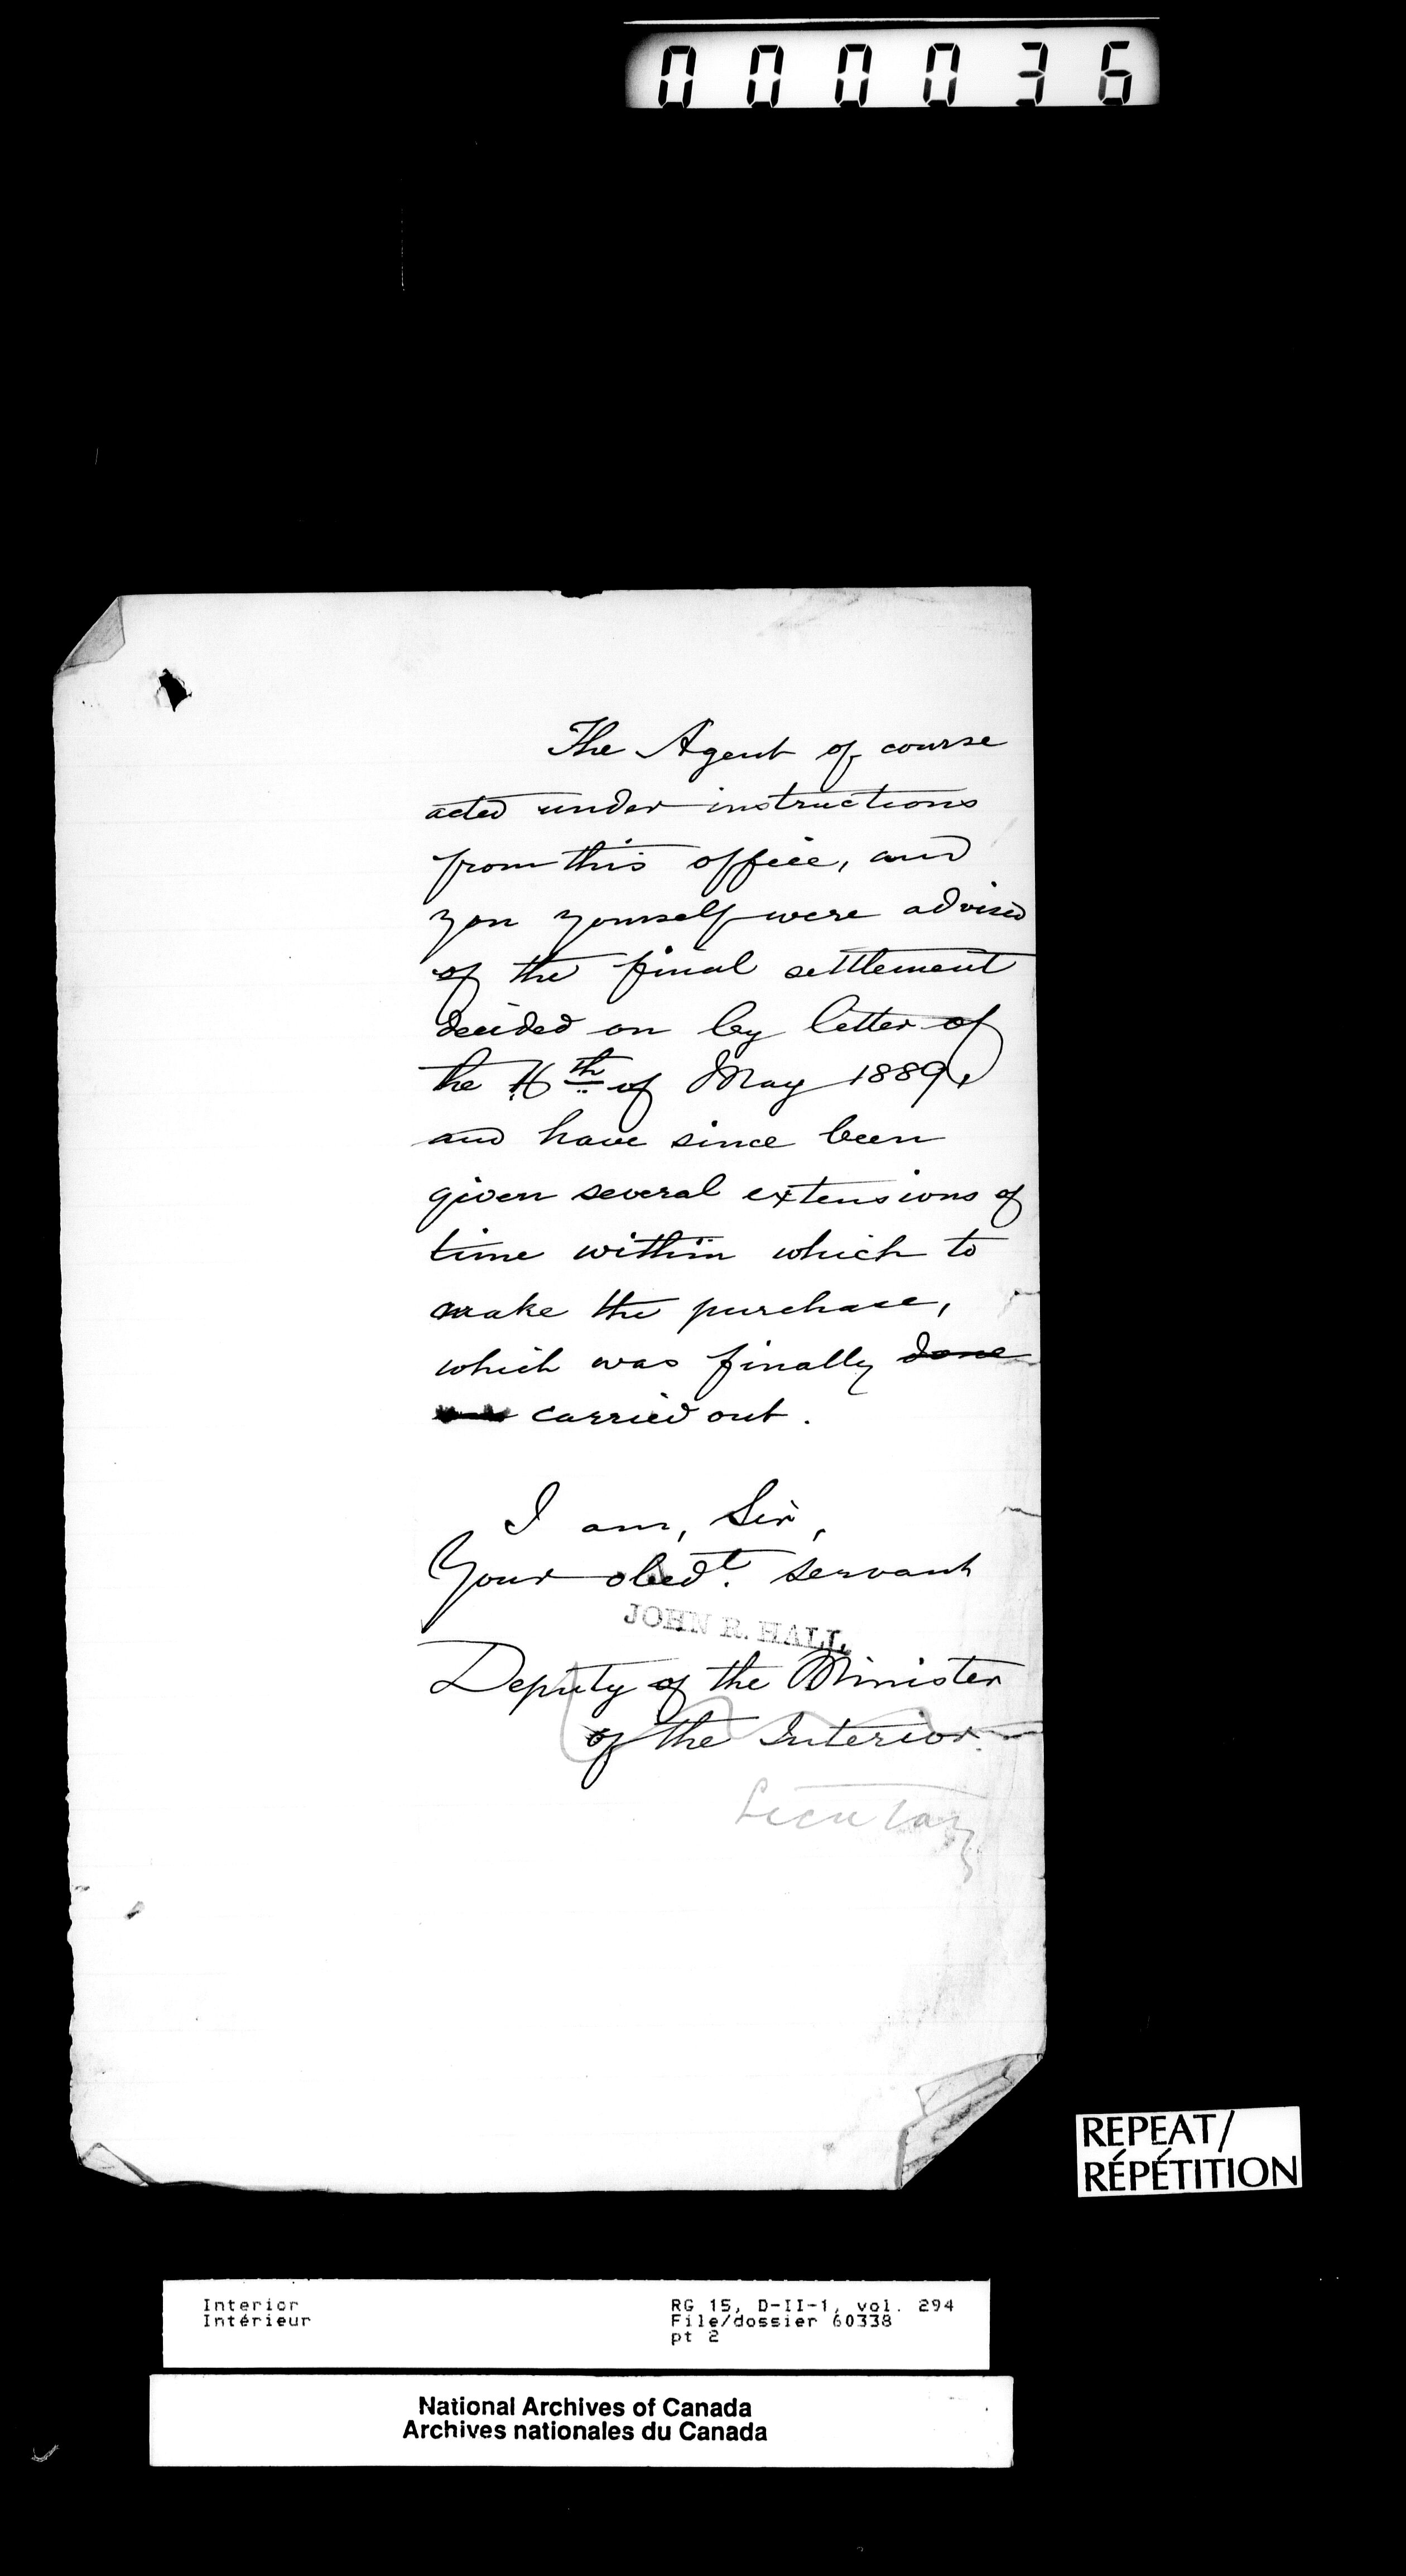 000036
The Agent of course
acted under instructions
from this office, and
you yourself were advised
of the final settlement
decided on by letter of
the 16th of May 1889,
and have since been
given several extensions of
time within which to
make the purchase,
which was finally done
carried out.
I am, Sir,
Your obedt. servant
JOHN R. HALL,
Deputy of the Minister
of the Interior.
Secretary
REPEAT/
RÉPÉTITION
Interior RG 15, D-II-1, vol. 294
Intérieur File/dossier 60338
pt 2
National Archives of Canada
Archives nationales du Canada